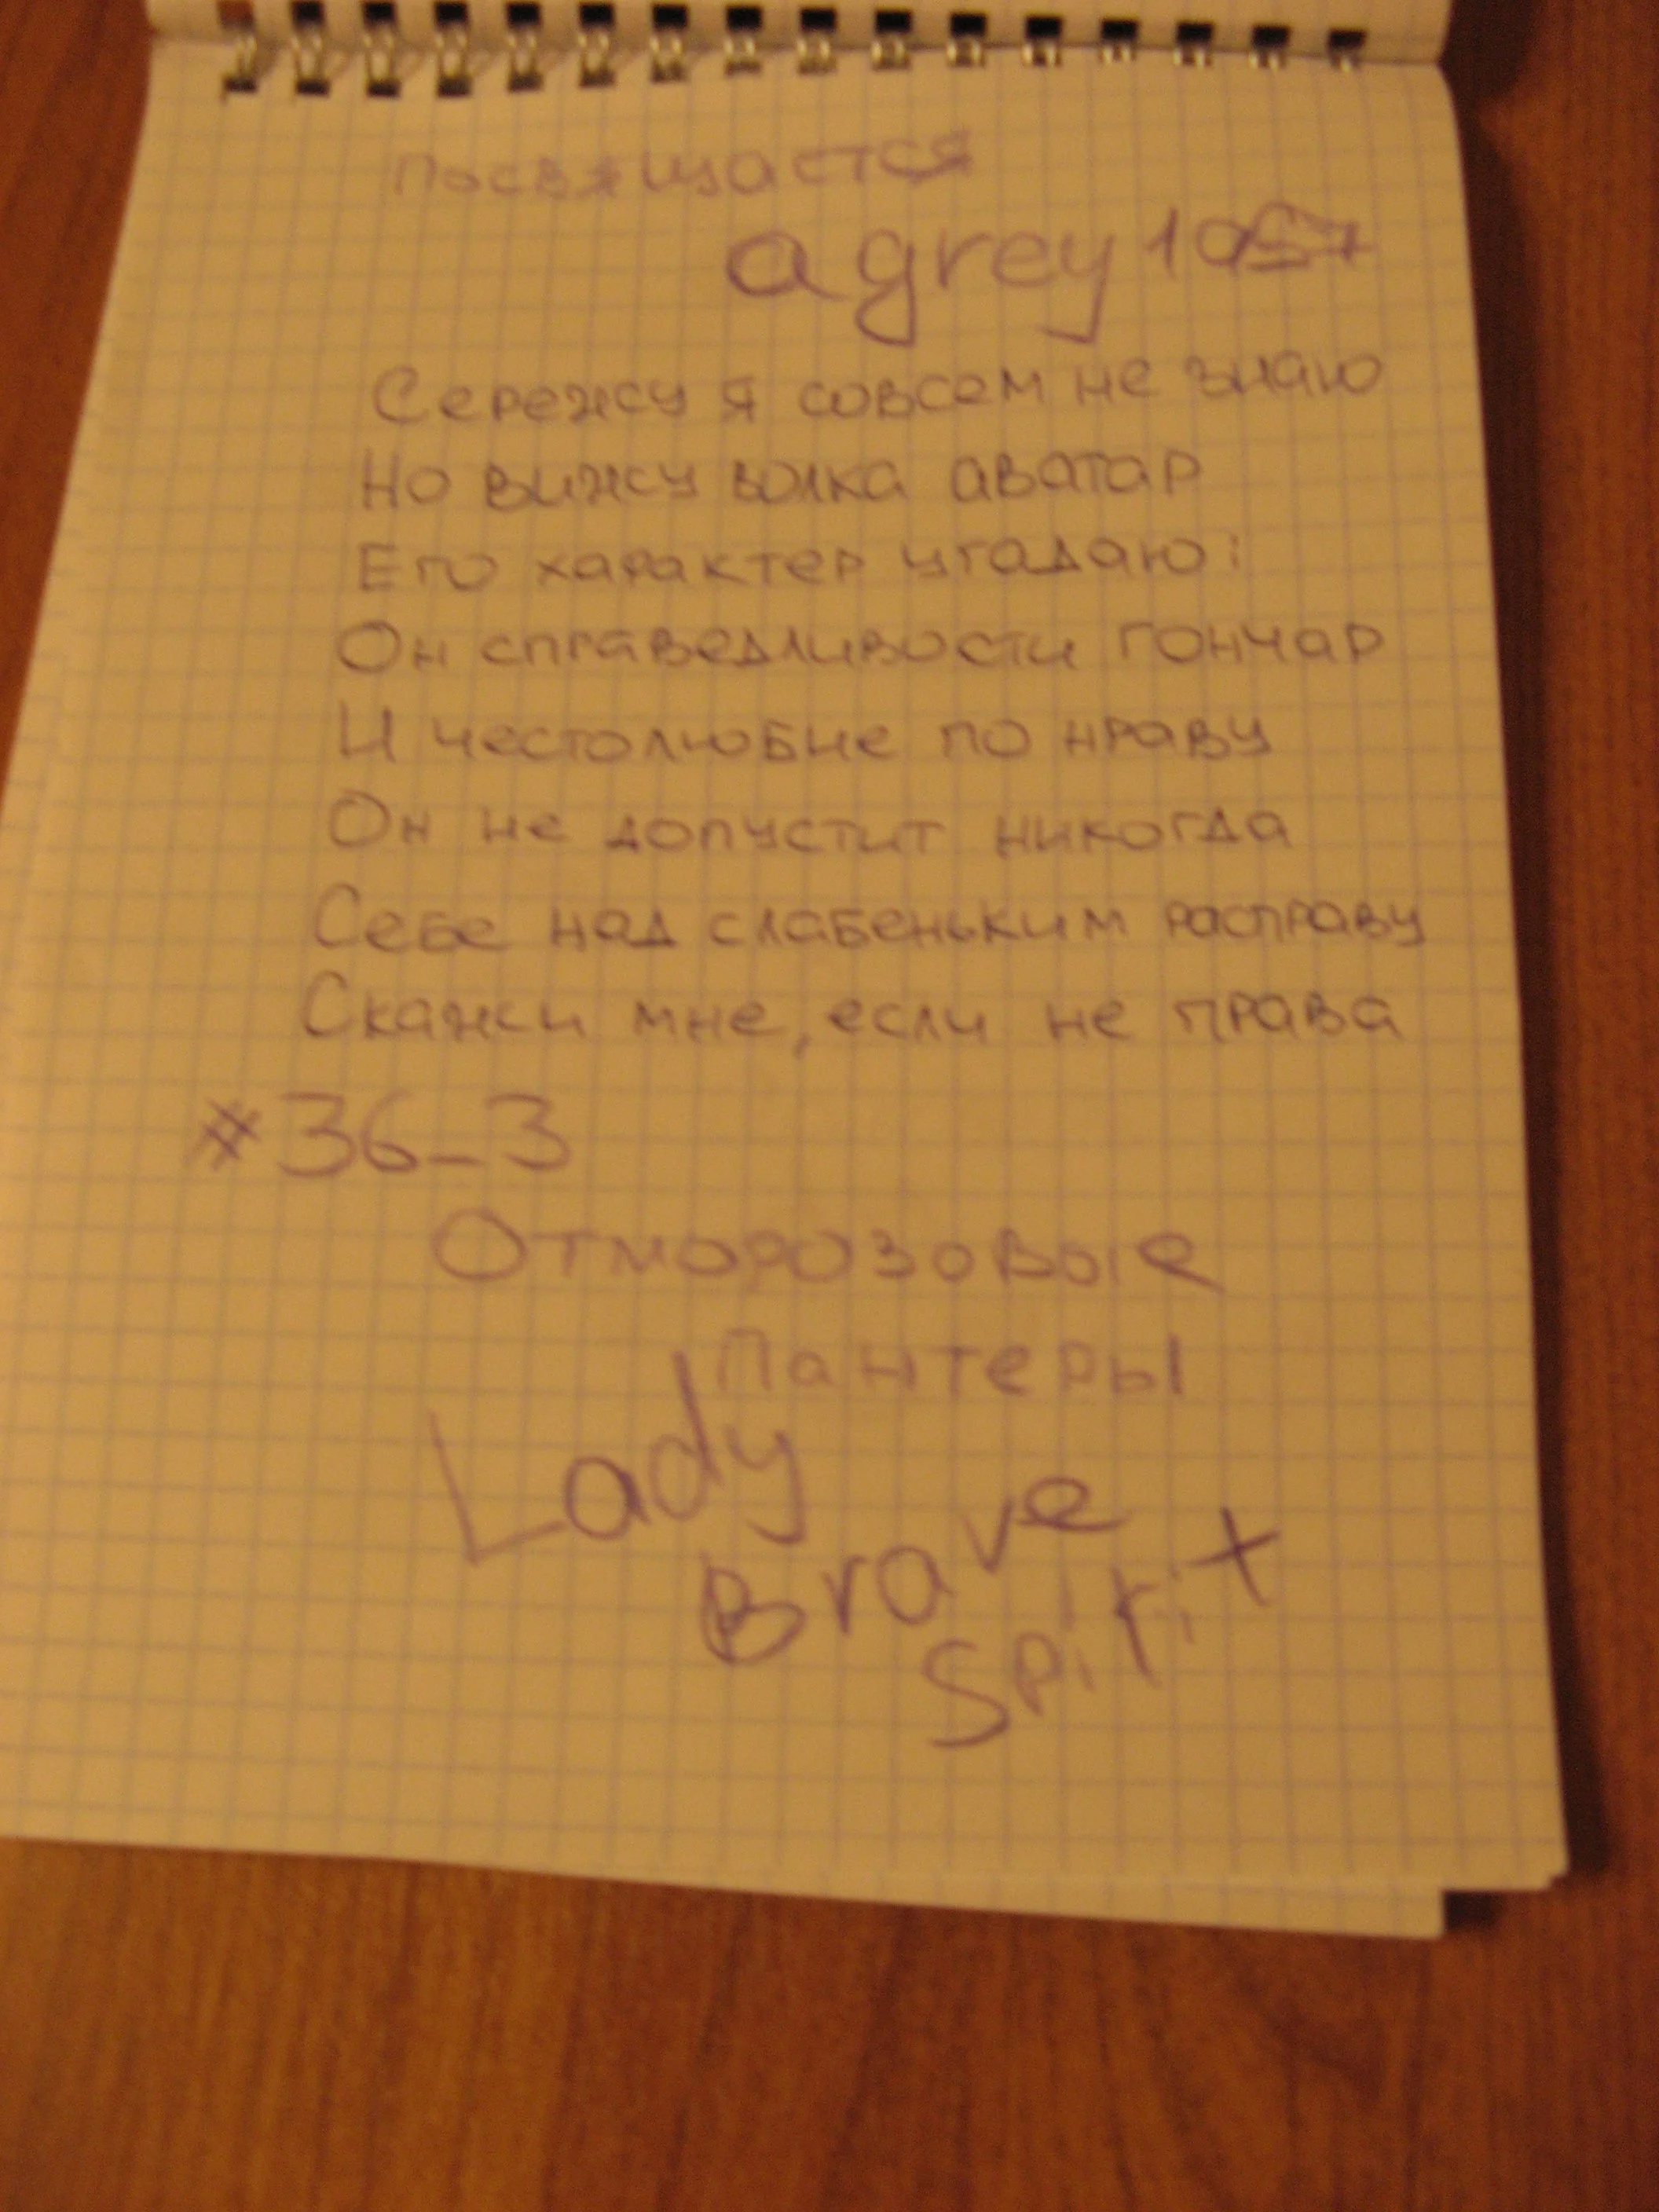 посвящается
agrey1957
Сережу я совсем не знаю
Но вижу волка аватар
Его характер угадаю:
Он справедливости гончар
И честолюбие по нраву
Он не допустит никогда
Себе над слабеньким расправу
Скажи мне, если не права
#36_3
Отморозовые
Пантеры
Lady
Brave
Spirit